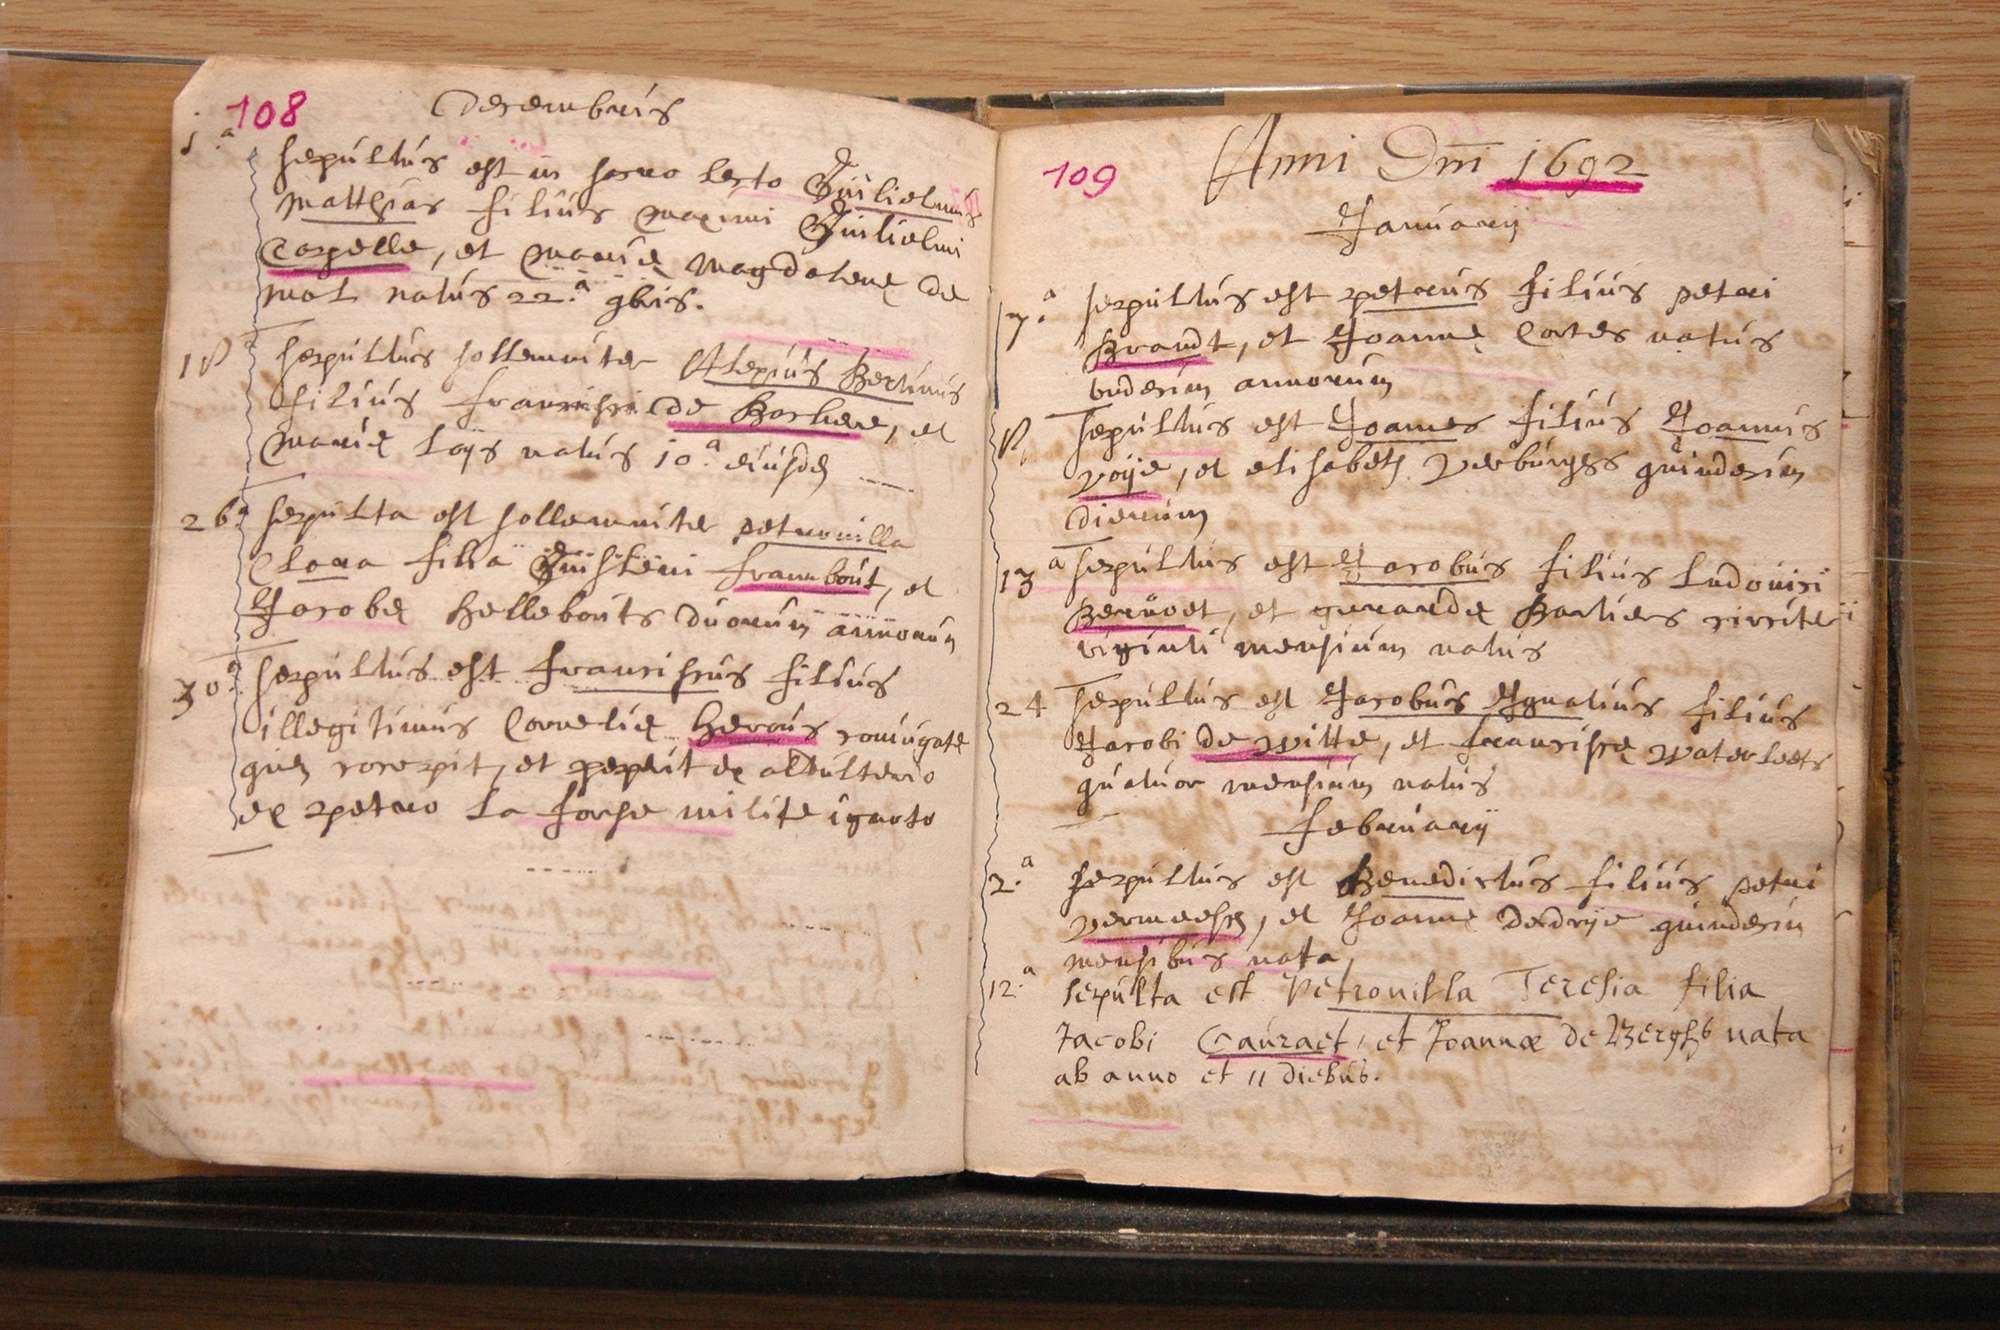 108
Decembris
1.a sepultus est in sacro lecto Guilielmus
Matthias filius Maximi Guilielmi
Cappelle, et Marie Magdalene de
mol natus 22.a 9bris.
18 sepultus sollemniter Alexius Bertinus
filius Francisci de Backere, et
Marie Loijs natus 10.a eiusdem
26.a sepulta est sollemniter petronilla
Clara filia Guisleni Frambout, et
Jacobe Hellebouts duorum annorum
30.a sepultus est Franciscus filius
illegitimus Cornelie Herous coniugate
quem concepit, et peperit ex adulterio
ex petro la forse milite ignoto
109
Anni Dni 1692
Januarij
7.a sepultus est petrus filius petri
Brandt, et Joanne Cortes natus
undecim annorum
8 sepultus est Joannes filius Joannis
voije, et elisabeth verburghs quindecim
dierum
13a sepultus est Jacobus filius Ludovici
Bervoet, et gerarde Barliers circiter
viginti mensium natus
24 sepultus est Jacobus Ignatius filius
Jacobi de Witte, et Francisce Waterleets
quatuor mensium natus
Februarij
2.a sepultus est Benedictus filius petri
vermeesch, et Joanne Dedrije quindecim
mensibus nata
12.a sepulta est Petronilla Teresia filia
Jacobi Cauraet, et Joannæ de Berghs nata
ab anno et 11 diebus.